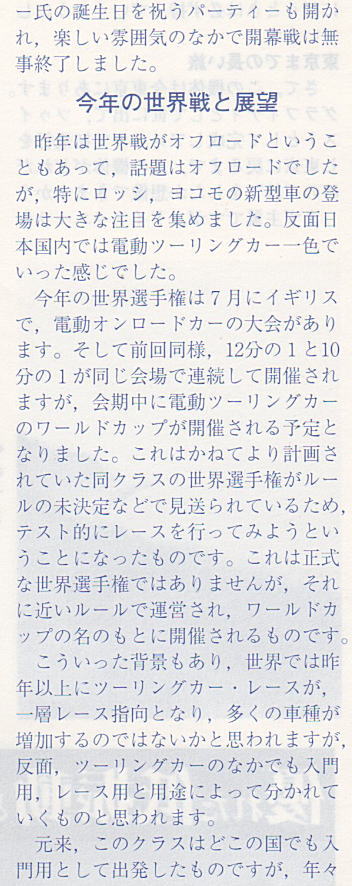 ー氏の誕生日を祝うパーティーも開か
れ，楽しい雰囲気のなかで開幕戦は無
事終了しました。
今年の世界戦と展望
　昨年は世界戦がオフロードというこ
ともあって，話題はオフロードでした
が，特にロッシ，ヨコモの新型車の登
場は大きな注目を集めました。反面日
本国内では電動ツーリングカー一色で
いった感じでした。
　今年の世界選手権は７月にイギリス
で，電動オンロードカーの大会があり
ます。そして前回同様，12分の１と10
分の１が同じ会場で連続して開催され
ますが，会期中に電動ツーリングカー
のワールドカップが開催される予定と
なりました。これはかねてより計画さ
れていた同クラスの世界選手権がルー
ルの未決定などで見送られているため，
テスト的にレースを行ってみようとい
うことになったものです。これは正式
な世界選手権ではありませんが，それ
に近いルールで運営され，ワールドカ
ップの名のもとに開催されるものです。
　こういった背景もあり，世界では昨
年以上にツーリングカー・レースが，
一層レース指向となり，多くの車種が
増加するのではないかと思われますが，
反面，ツーリングカーのなかでも入門
用，レース用と用途によって分かれて
いくものと思われます。
　元来，このクラスはどこの国でも入
門用として出発したものですが，年々